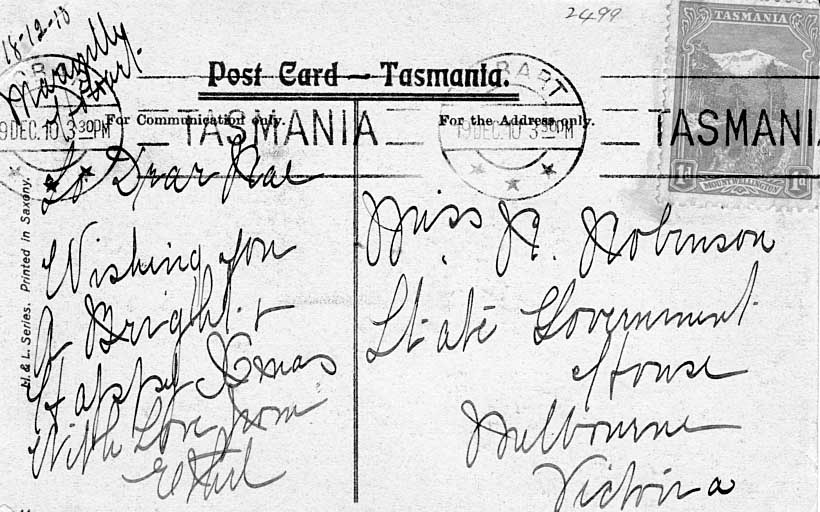 2499
18-12-10
Hobart.
TASMANIA
Post Card – Tasmania.
HOBART
19DEC.10 3 30PM
TASMANIA
For Communication only.
For the Address only.
HOBART
19DEC.10 3 30PM
TASMANIA
MOUNT WELLINGTON
1d 1d
H. & L. Series. Printed in Saxony.
To Dear Rae
Wishing you
A Bright &
Happy Xmas
With Love from
Ethel
Miss R. Robinson
State Government
House
Melbourne
Victoria